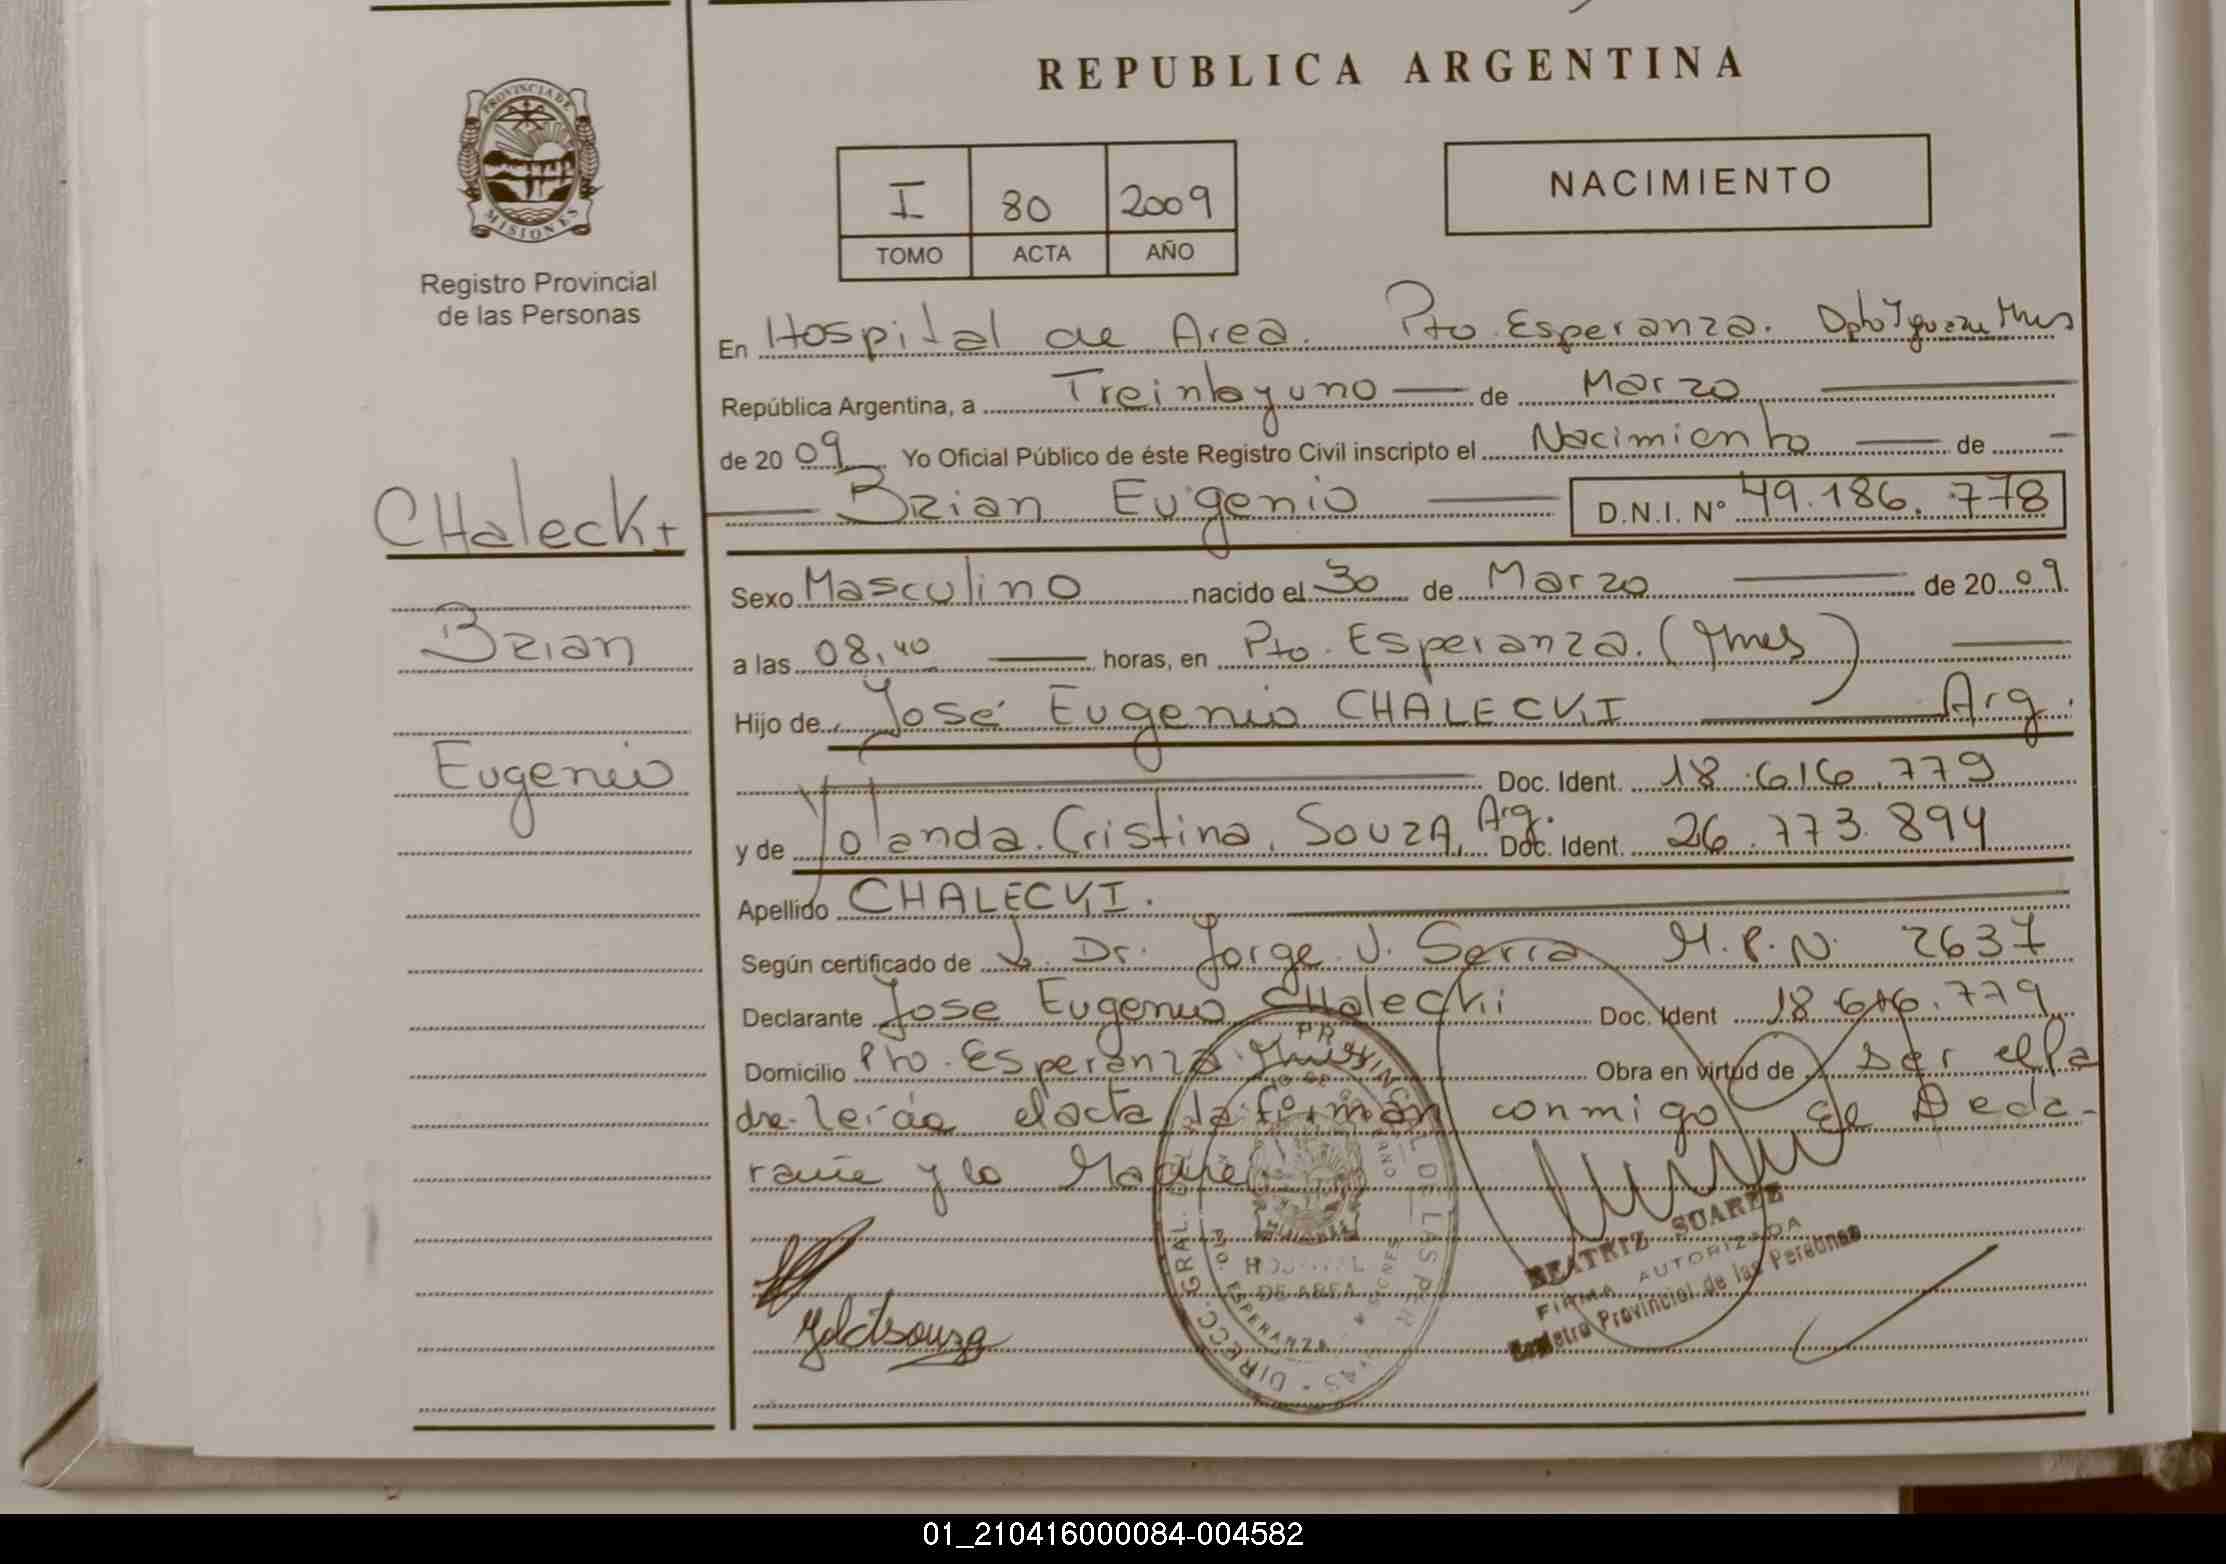 REPUBLICA ARGENTINA
PROVINCIA DE
MISIONES
Registro Provincial
de las Personas
I 80 2009
TOMO ACTA AÑO
NACIMIENTO
En Hospital de Area. Pto. Esperanza. Dpto Iguazu Mnes
República Argentina, a Treintayuno de Marzo
de 2009 Yo Oficial Público de éste Registro Civil inscripto el Nacimiento de
Brian Eugenio D.N.I. N° 49.186.778
CHalecki
Brian
Eugenio
Sexo Masculino nacido el 30 de Marzo de 2009
a las 08,40 horas, en Pto. Esperanza. (Mnes)
Hijo de José Eugenio CHALECKI Arg.
Doc. Ident. 18.616.779
y de Yolanda Cristina, SOUZA, Arg. Doc. Ident. 26.773.894
Apellido CHALECKI.
Según certificado de Dr. Jorge J. Serra M.P.N. 2637
Declarante Jose Eugenio CHalecki Doc. Ident 18.616.779
Domicilio Pto. Esperanza Mnes Obra en virtud de ser el Pa
dre. leída el acta la firman conmigo el Decla-
rante y la Madre
DIRECC. GRAL. PROVINCIAL DE LAS PERSONAS
HOSPITAL
DE AREA
PTO. ESPERANZA - MISIONES
BEATRIZ SUAREZ
FIRMA AUTORIZADA
Registro Provincial de las Personas
01_210416000084-004582